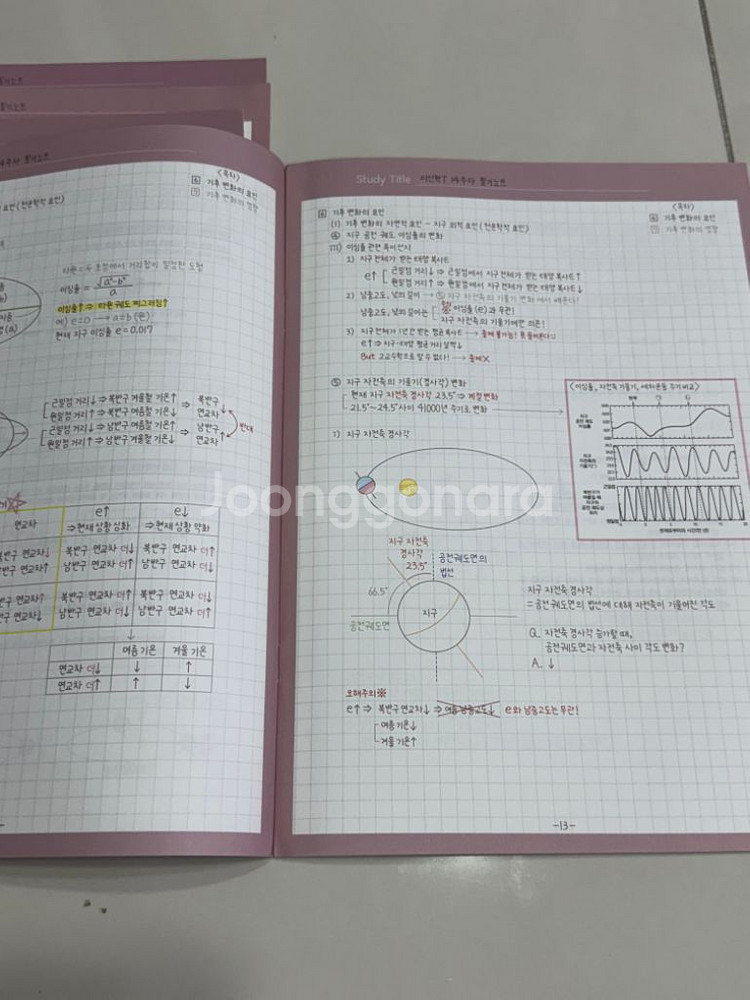 필기노트
필기노트
필기노트
<목차>
6 기후 변화의 요인
7 기후 변화의 영향
요인(천문학적 요인)
타원=두 초점에서 거리합이 일정한 도형
이심률 = √a²-b² / a
이심률↑ ⇒ 타원 궤도 찌그러짐↑
예) e=0 → a=b (원)
현재 지구 이심률 e=0.017
(a)
근일점 거리↓ ⇒ 북반구 겨울철 기온↑ ⇒ 북반구
원일점 거리↑ ⇒ 북반구 여름철 기온↓ 연교차↓
근일점 거리↓ ⇒ 남반구 여름철 기온↑ ⇒ 남반구
원일점 거리↑ ⇒ 남반구 겨울철 기온↓ 연교차↑
반대
연교차 e↑ e↓
⇒현재 상황 심화 ⇒현재 상황 약화
북반구 연교차↓ 북반구 연교차 더↓ 북반구 연교차 더↑
남반구 연교차↑ 남반구 연교차 더↑ 남반구 연교차 더↓
북반구 연교차↑ 북반구 연교차 더↑ 북반구 연교차 더↓
남반구 연교차↓ 남반구 연교차 더↓ 남반구 연교차 더↑
여름 기온 겨울 기온
연교차 더↓ ↓ ↑
연교차 더↑ ↑ ↓
Study Title 필기노트
<목차>
6 기후 변화의 요인
7 기후 변화의 영향
6 기후 변화의 요인
(1) 기후 변화의 자연적 요인 - 지구 외적 요인(천문학적 요인)
④ 지구 공전 궤도 이심률의 변화
1) 지구전체가 받는 태양 복사E
e↑ 근일점 거리↓ ⇒ 근일점에서 지구전체가 받는 태양 복사E↑
원일점 거리↑ ⇒ 원일점에서 지구전체가 받는 태양 복사E↓
2) 남중고도, 낮의 길이 → ⑤ 지구 자전축의 기울기 변화 에서 배운다!
남중고도, 낮의 길이는 이심률(e)과 무관!
지구 자전축의 기울기에만 의존!
3) 지구전체가 1년간 받는 평균 복사E → 출제 불가능!
e↑ ⇒ 지구-태양 평균 거리
But 고교수학으로 알 수 없다! → 출제X
⑤ 지구 자전축의 기울기(경사각) 변화
현재 지구 자전축 경사각 23.5° ⇒ 계절 변화
21.5°~24.5° 사이 41000년 주기로 변화
<이심률, 자전축 기울기, 세차운동 주기 비교>
지구
공전 궤도
이심률
지구
자전축의
기울기(°)
근일점
원일점
ㄱ) 지구 자전축 경사각
Joonggonara
지구 자전축
경사각
23.5°
공전궤도면의
법선
66.5°
공전궤도면
지구
지구 자전축 경사각
= 공전 궤도면의 법선에 대해 자전축이 기울어진 각도
Q. 자전축 경사각 증가할 때,
공전궤도면과 자전축 사이 각도 변화?
A. ↓
오해주의※
e↑ ⇒ 북반구 연교차↓ ⇒ 여름 남중고도↓ e와 남중고도는 무관!
여름 기온↓
겨울 기온↑
-13-